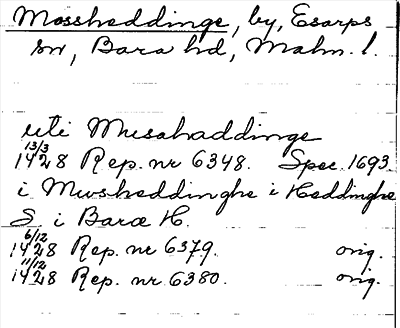 Mossheddinge, by, Esarps
sn, Bara hd, Malm. l.
uti Musahaddinge
13/3
1428 Rep. nr 6348. Spec. 1693.
i Mwsheddinghe i Heddinghe
S i Baræ H.
6/12
1428 Rep. nr 6379. orig.
11/12
1428 Rep. nr 6380. orig.